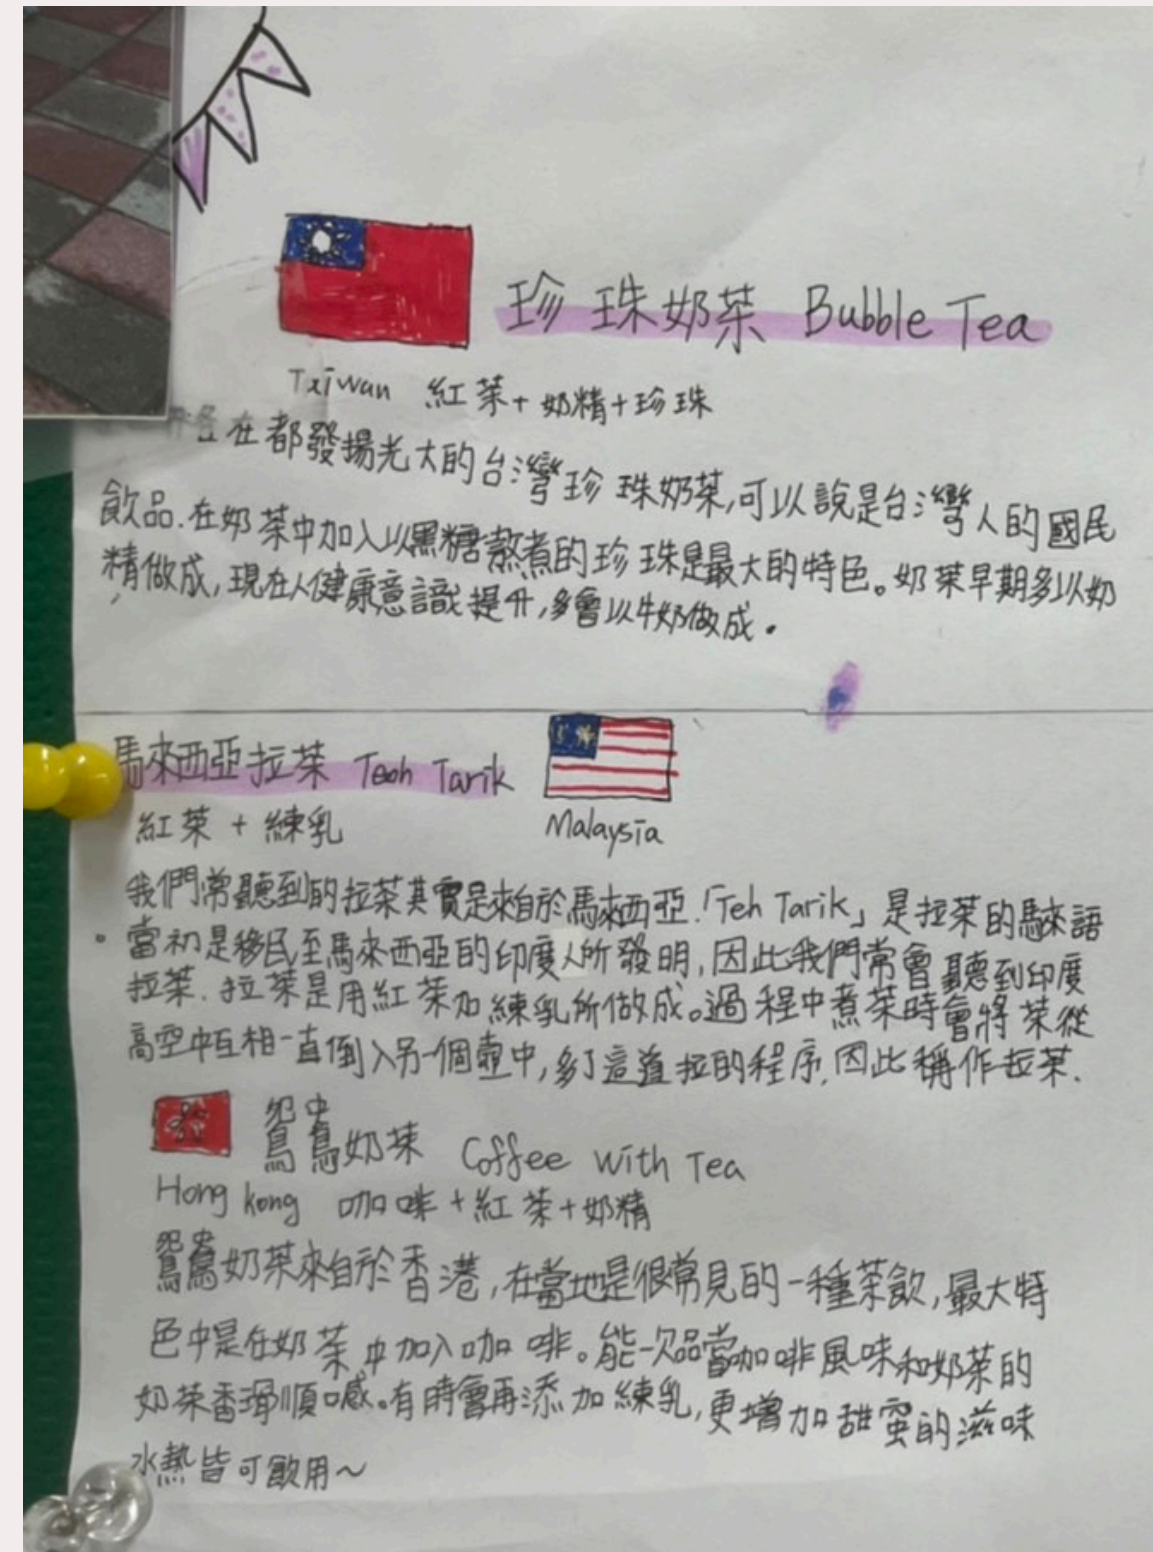 珍珠奶茶 Bubble Tea
Taiwan 紅茶+奶精+珍珠
在都發揚光大的台灣珍珠奶茶,可以說是台灣人的國民
飲品.在奶茶中加入以黑糖熬煮的珍珠是最大的特色。奶茶早期多以奶
精做成,現在人健康意識提升,多會以牛奶做成。
馬來西亞拉茶 Teoh Tarik
紅茶+練乳
Malaysia
我們常聽到的拉茶其實是來自於馬來西亞.「Teh Tarik」是拉茶的馬來語
。當初是移民至馬來西亞的印度人所發明,因此我們常會聽到印度
拉茶.拉茶是用紅茶加練乳所做成。過程中煮茶時會將茶從
高空中互相一直倒入另一個壺中,多了這道拉的程序.因此稱作拉茶.
鴛鴦奶茶 Coffee With Tea
Hong kong 咖啡+紅茶+奶精
鴛鴦奶茶來自於香港,在當地是很常見的一種茶飲,最大特
色中是在奶茶中加入咖啡。能一次品嘗咖啡風味和奶茶的
奶茶香滑順喉。有時會再添加練乳,更增加甜蜜的滋味
冰熱皆可飲用~